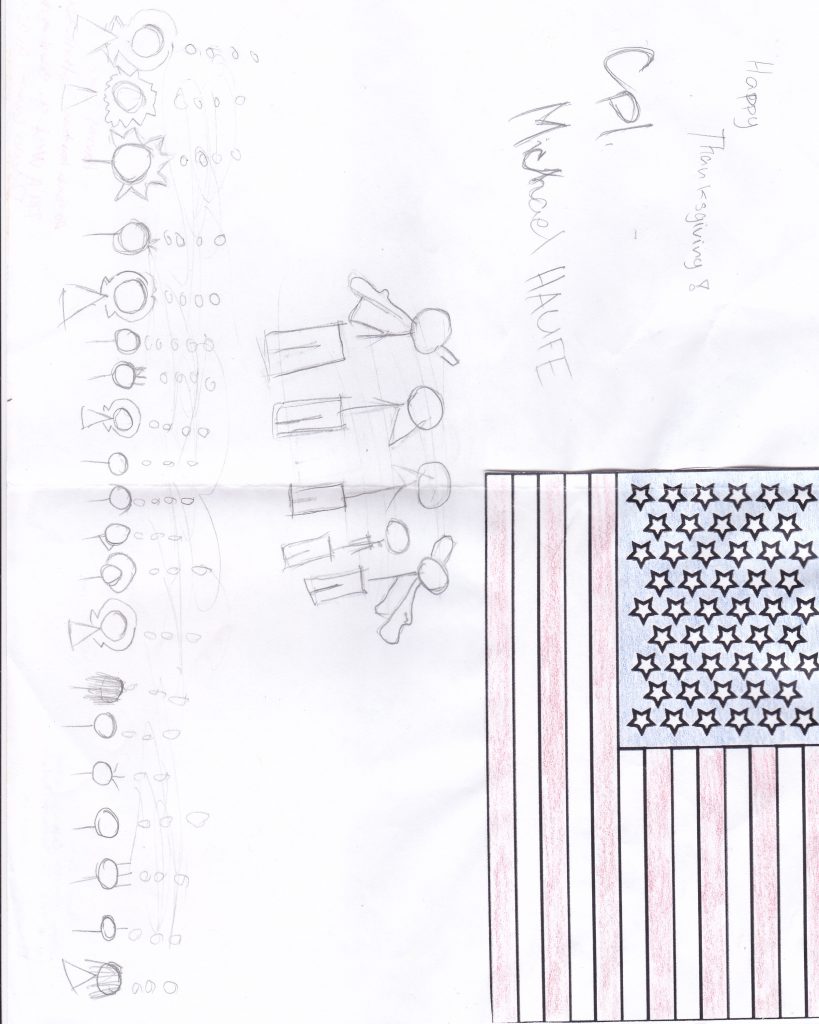 Happy
Thanksgiving &
Cpl.
Michael HAUFE